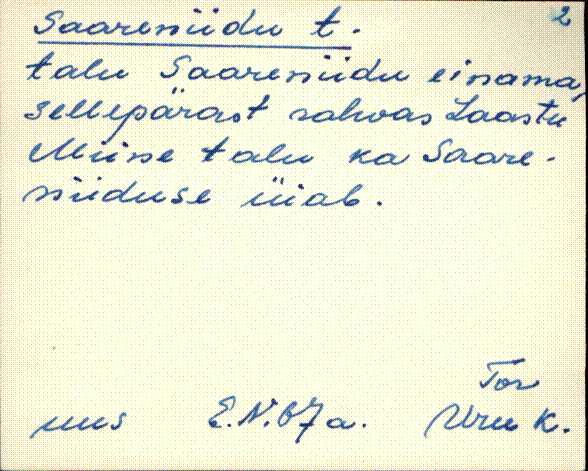 2
Saareniidu t.
talu Saareniidu einama,
sellepärast rahvas Laastu
Miine talu ka Saare-
niiduse üiab.
Tor
uus E.N. 67 a. Uru k.